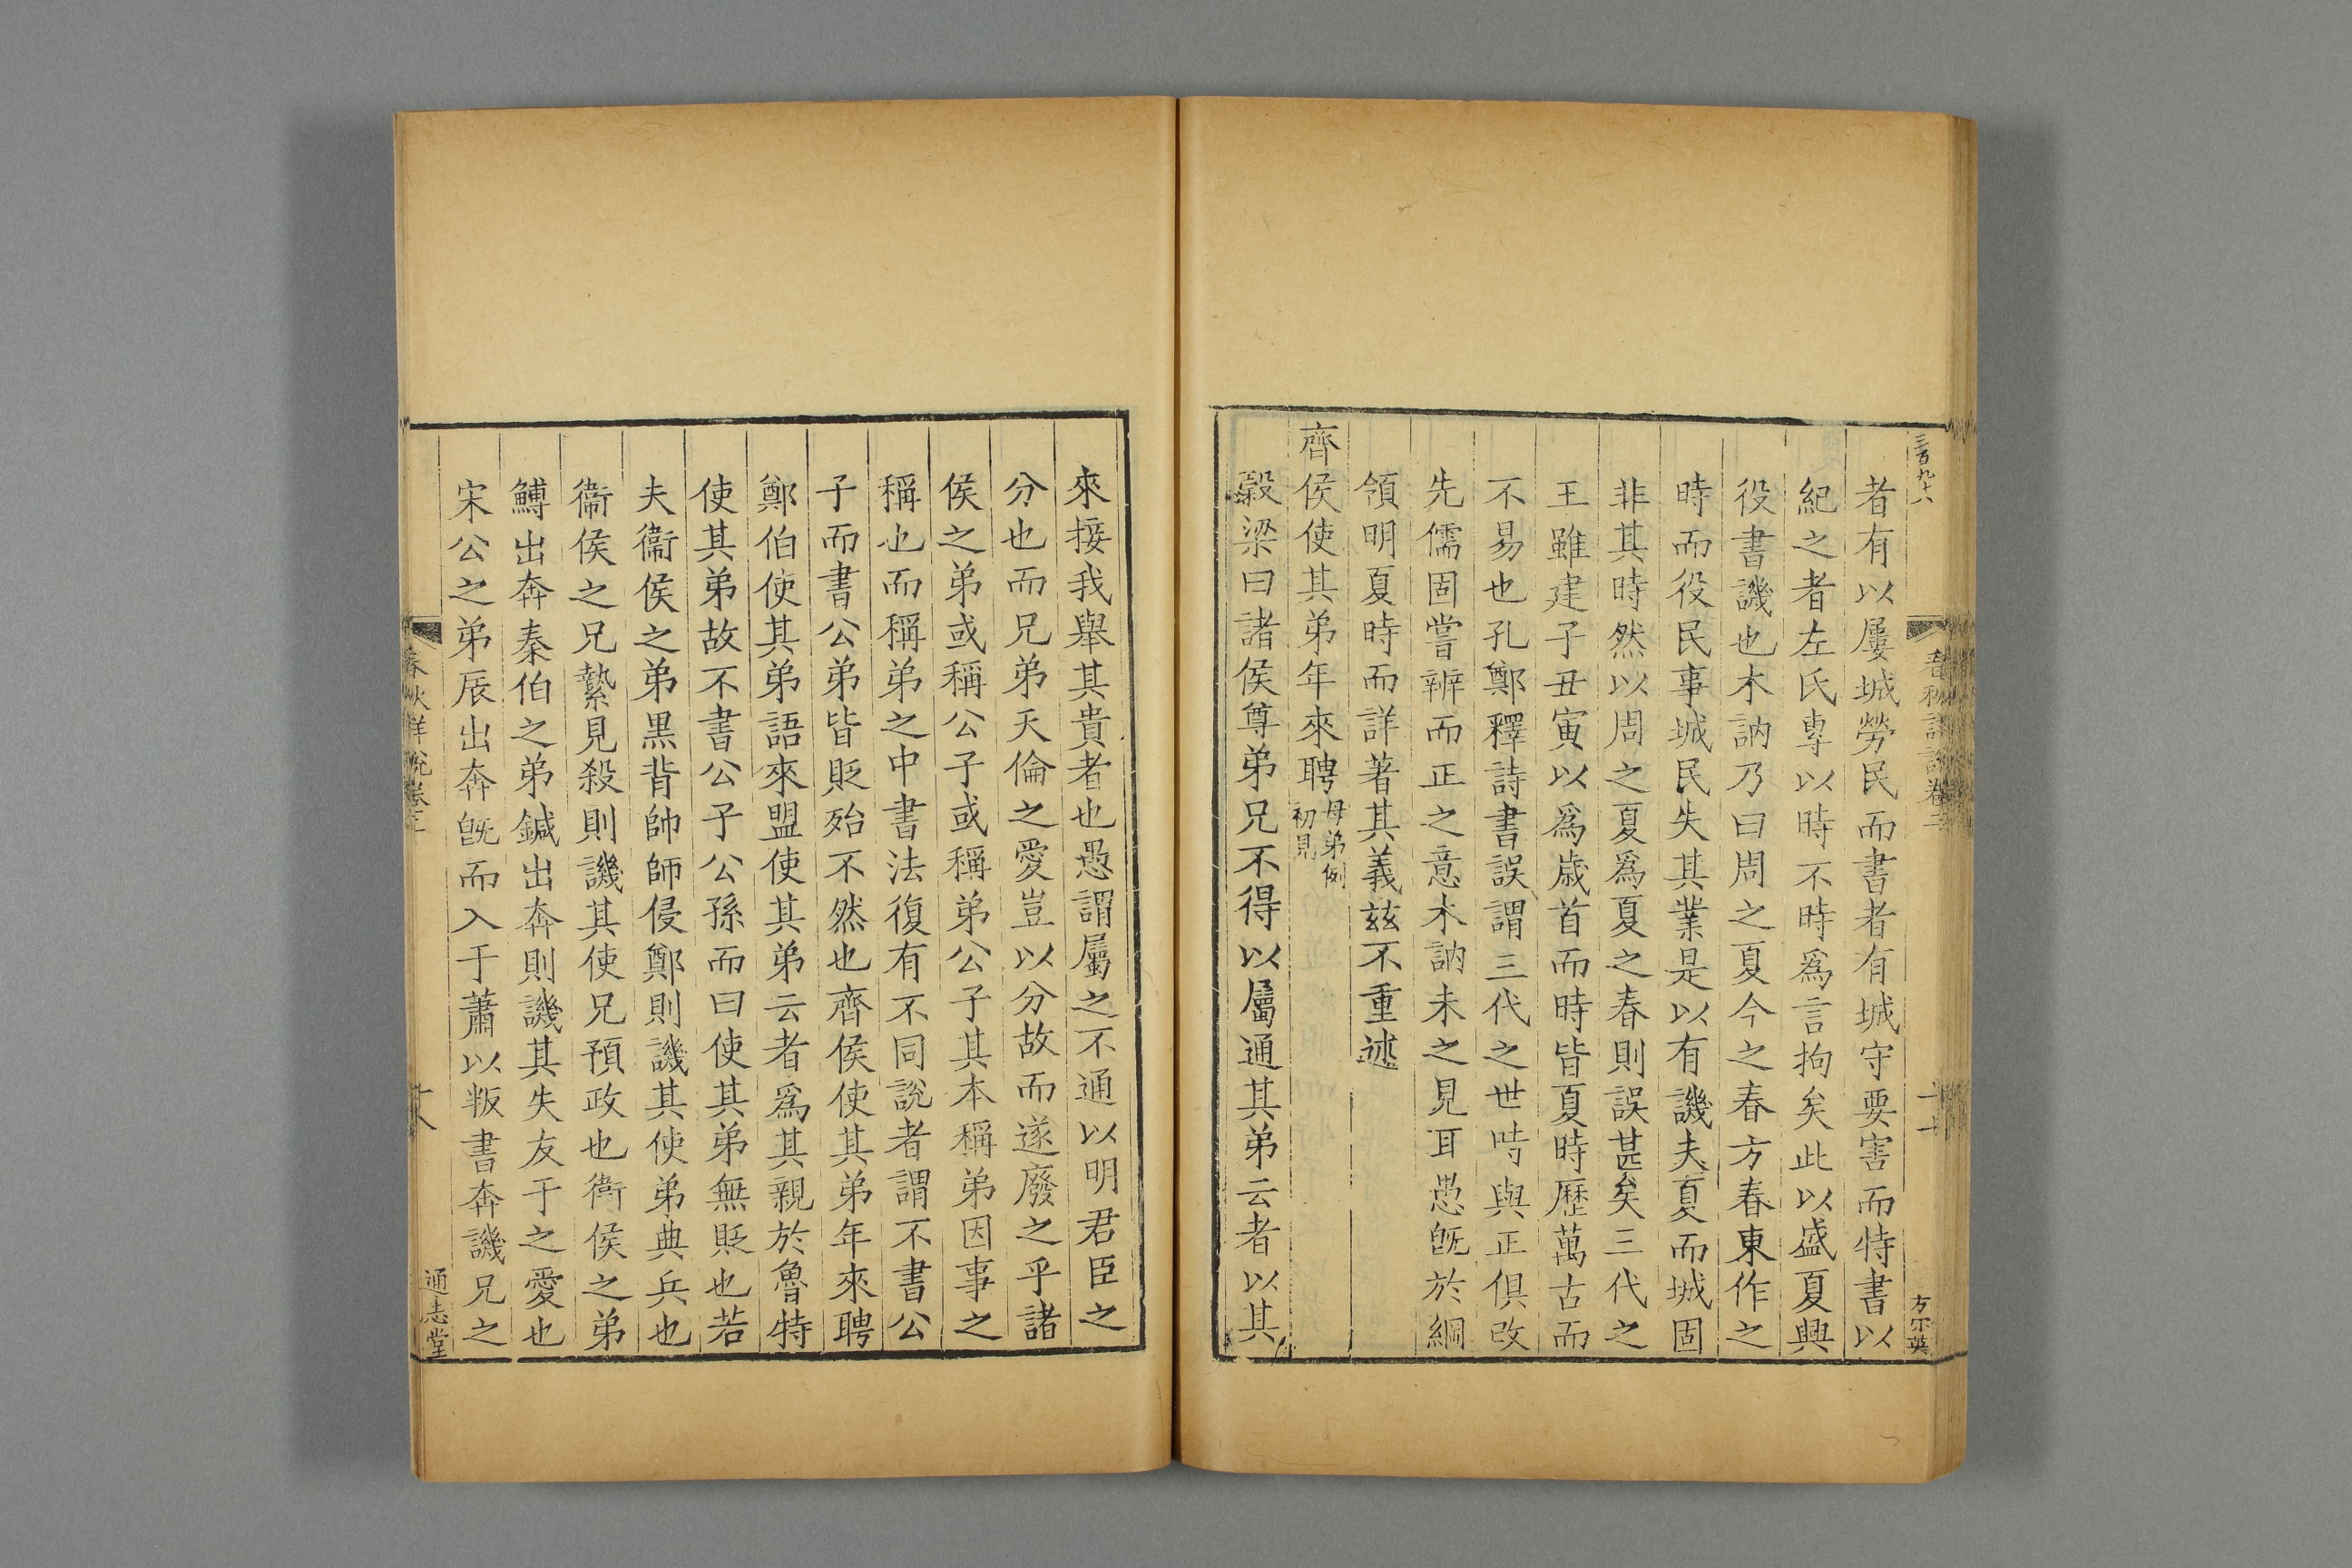 三百九十八
春秋詳說卷三
方宗英
者有以屢城勞民而書者有城守要害而特書以
紀之者左氏專以時不時爲言拘矣此以盛夏興
役書譏也木訥乃曰周之夏今之春方春東作之
時而役民事城民失其業是以有譏夫夏而城固
非其時然以周之夏爲夏之春則誤甚矣三代之
王雖建子丑寅以爲歲首而時皆夏時歷萬古而
不易也孔鄭釋詩書誤謂三代之世時與正俱改
先儒固嘗辨而正之意木訥未之見耳愚旣於綱
領明夏時而詳著其義兹不重述
齊侯使其弟年來聘母弟例
初見
穀梁曰諸侯尊弟兄不得以屬通其弟云者以其
來接我舉其貴者也愚謂屬之不通以明君臣之
分也而兄弟天倫之愛豈以分故而遂廢之乎諸
侯之弟或稱公子或稱弟公子其本稱弟因事之
稱也而稱弟之中書法復有不同說者謂不書公
子而書公弟皆貶殆不然也齊侯使其弟年來聘
鄭伯使其弟語來盟使其弟云者爲其親於魯特
使其弟故不書公子公孫而曰使其弟無貶也若
夫衞侯之弟黑背帥師侵鄭則譏其使弟典兵也
衞侯之兄縶見殺則譏其使兄預政也衞侯之弟
鱄出奔秦伯之弟鍼出奔則譏其失友于之愛也
宋公之弟辰出奔旣而入于蕭以叛書奔譏兄之
春秋詳說卷三
通志堂